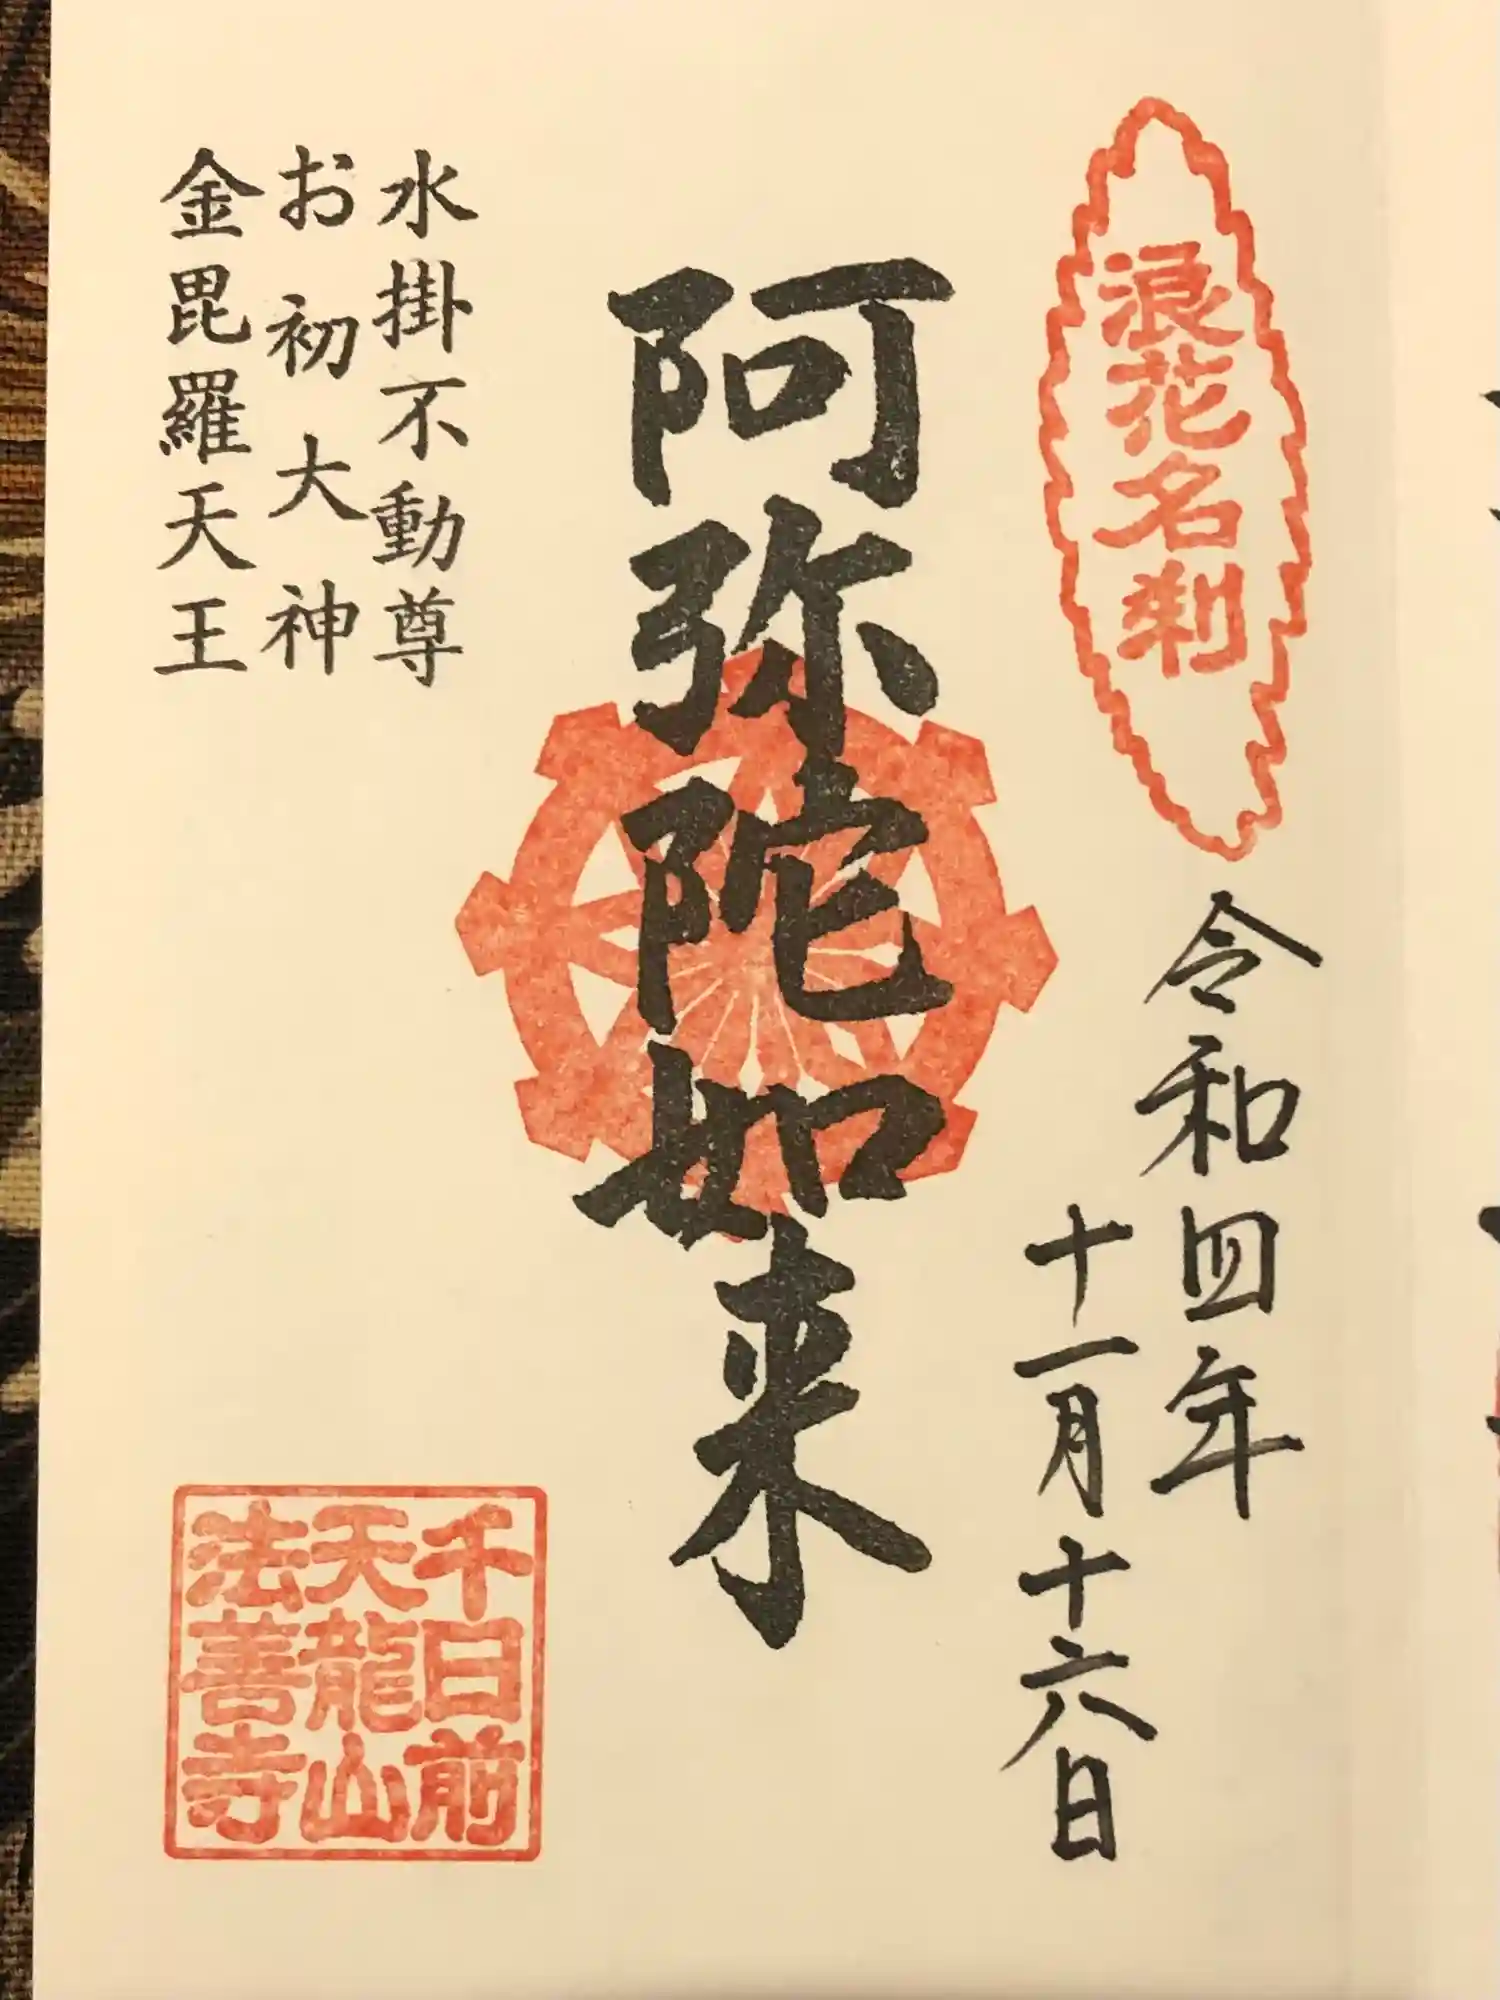 浪花名刹
令和四年
十一月十六日
阿弥陀如来
水掛不動尊
お初大神
金毘羅天王
千日前
天龍山
法善寺